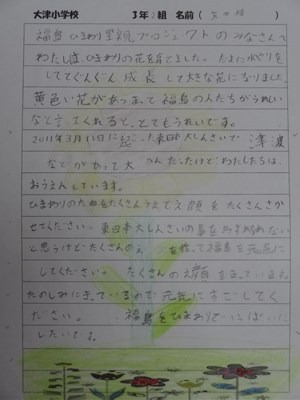 大津小学校 3年 組 名前
福島ひまわり里親プロジェクトのみなさんで
わたし達、ひまわりの花を育てました。
してぐんぐん成長して大きな花になりました。
黄色い花があって福島の人たちがうれしい
なと言ってくれると、とてもうれしいです。
2011年3月11日に起こった東日本大しんさいで津波
などがあって大 んだったけどわたしたちは、
おうえんしています。
ひまわりの をたくさんうえて笑顔をたくさんさか
せてください。東日本大しんさいの事をわすれない
と思うけどたくさんの を作って福島を元気に
してください。 たくさんの笑顔をまっています。
たのしみにまっているので元気にすごしてく
ださい。 福島をひまわりでいっぱいに
したいです。